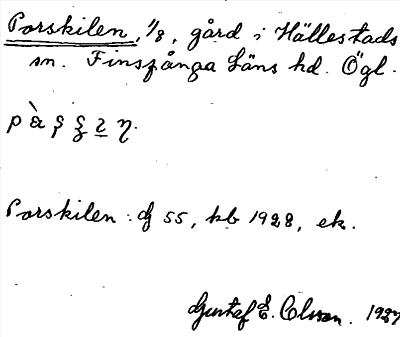 Porskilen, 1/8, gård i Hällestads
sn. Finspånga Läns hd. Ögl.
Porskilen: dj 55, kb 1928, ek.
Gustaf E. Olsson. 1927